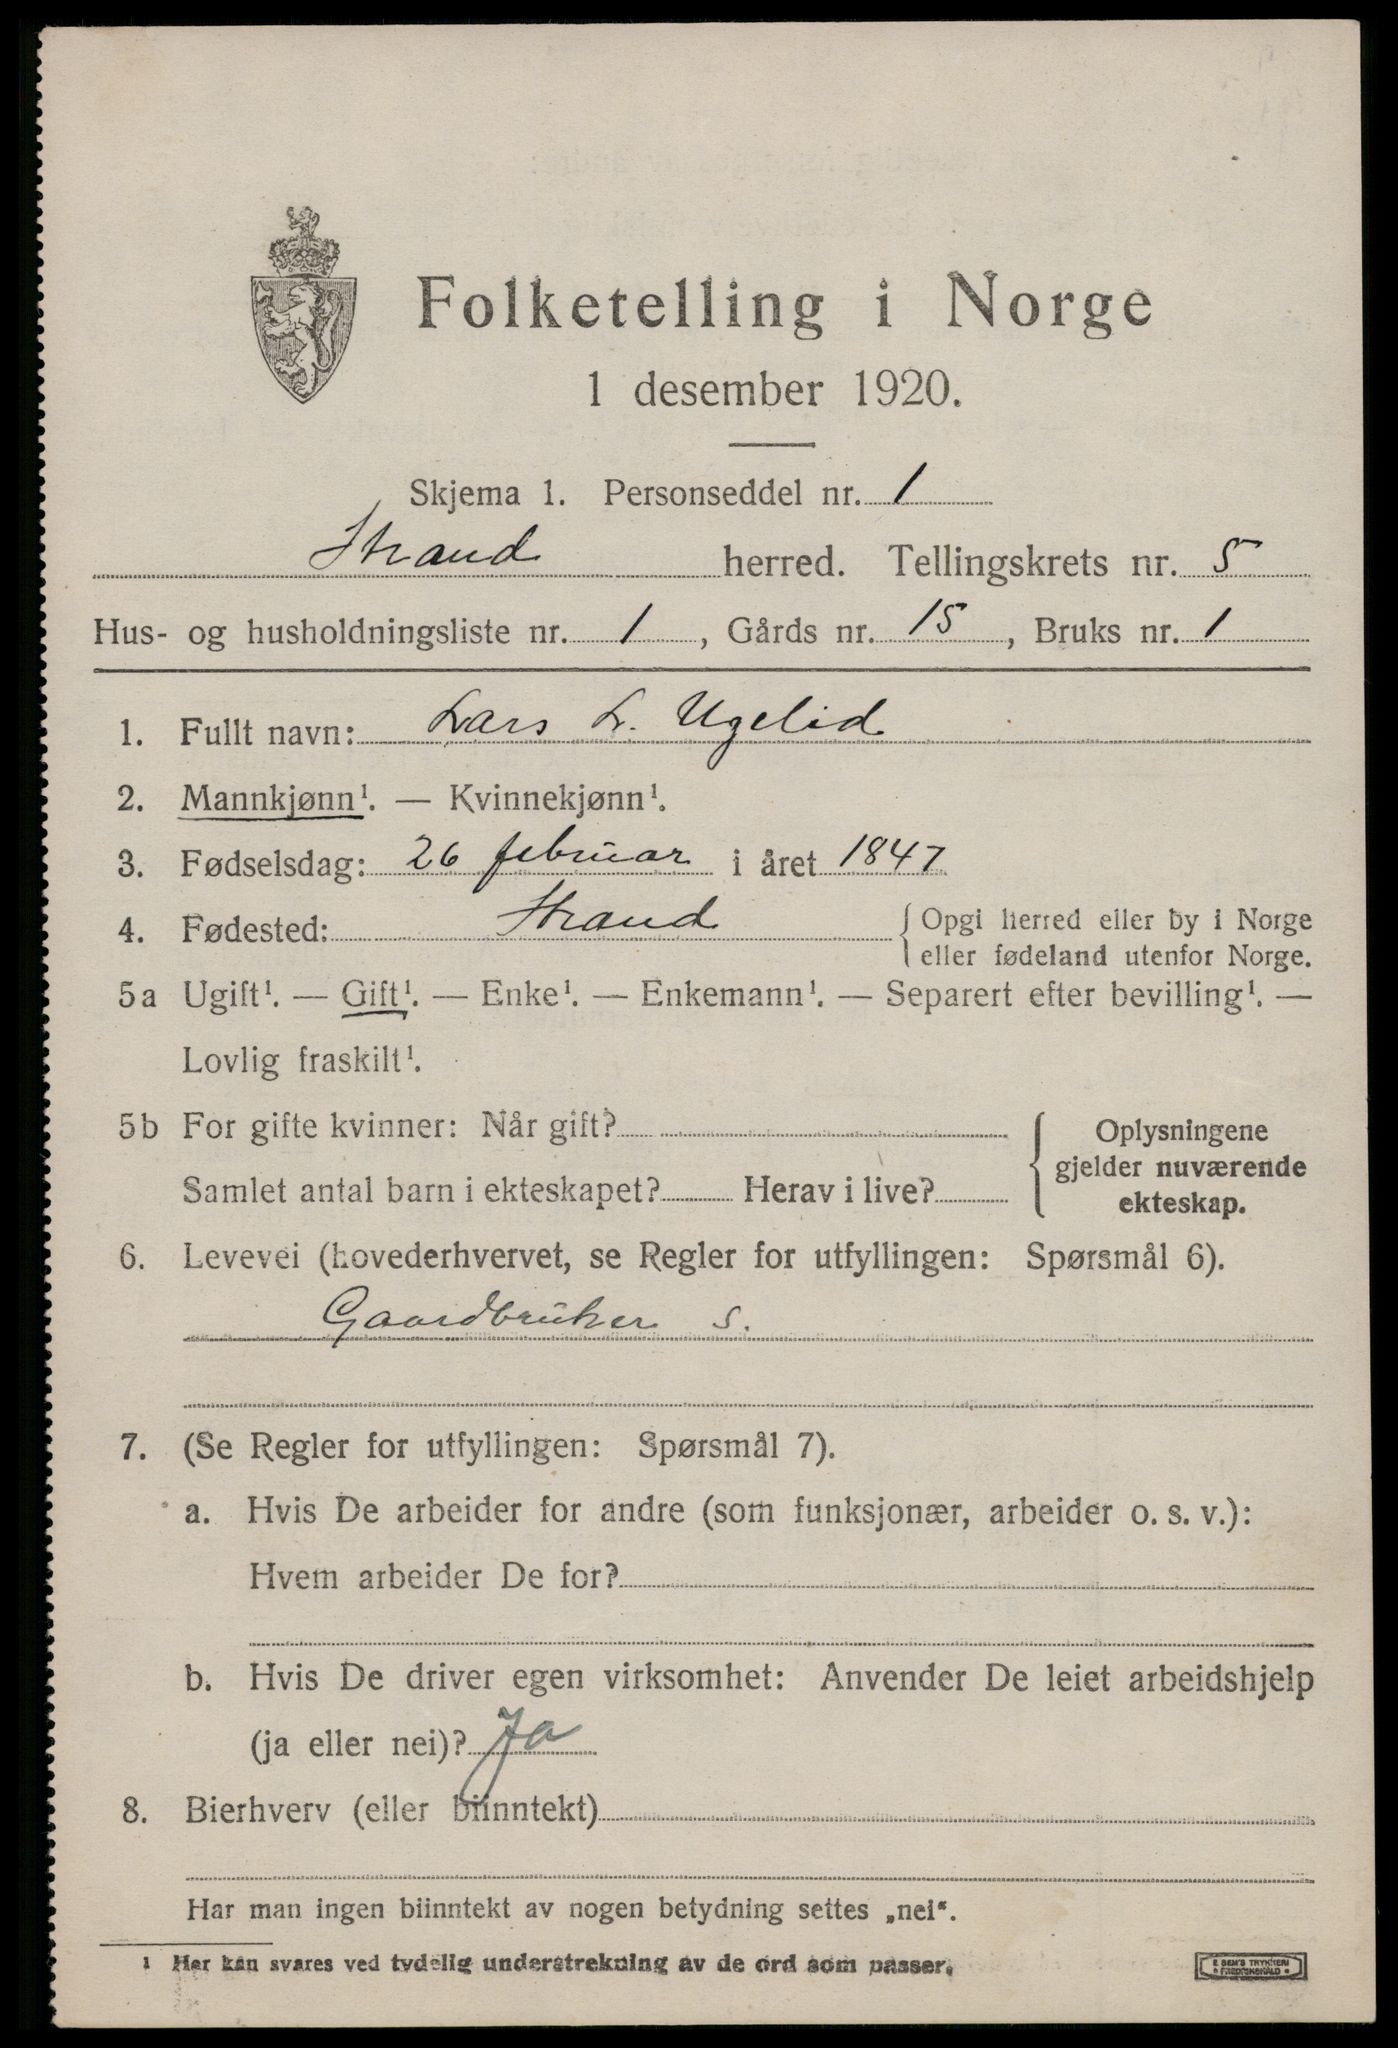 Folketelling i Norge
1 desember 1920.
Skjema 1. Personseddel nr. 1
Strand herred. Tellingskrets nr. 5
Hus- og husholdningsliste nr. 1, Gårds nr. 15, Bruks nr. 1
1. Fullt navn: Lars L. Ugelid
2. Mannkjønn¹. — Kvinnekjønn¹.
3. Fødselsdag: 26 februar i året 1847
4. Fødested: Strand { Opgi herred eller by i Norge
eller fødeland utenfor Norge.
5a Ugift¹. — Gift¹. — Enke¹. — Enkemann¹. — Separert efter bevilling¹. —
Lovlig fraskilt¹.
5b For gifte kvinner: Når gift?
Samlet antal barn i ekteskapet? Herav i live?
Oplysningene
gjelder nuværende
ekteskap.
6. Levevei (hovederhvervet, se Regler for utfyllingen: Spørsmål 6).
Gaardbruker s.
7. (Se Regler for utfyllingen: Spørsmål 7).
a. Hvis De arbeider for andre (som funksjonær, arbeider o. s. v.):
Hvem arbeider De for?
b. Hvis De driver egen virksomhet: Anvender De leiet arbeidshjelp
(ja eller nei)? Ja
8. Bierhverv (eller biinntekt)
Har man ingen biinntekt av nogen betydning settes „nei“.
¹ Her kan svares ved tydelig understrekning av de ord som passer.
E SEM'S TRYKKERI
FREDRIKSHALD